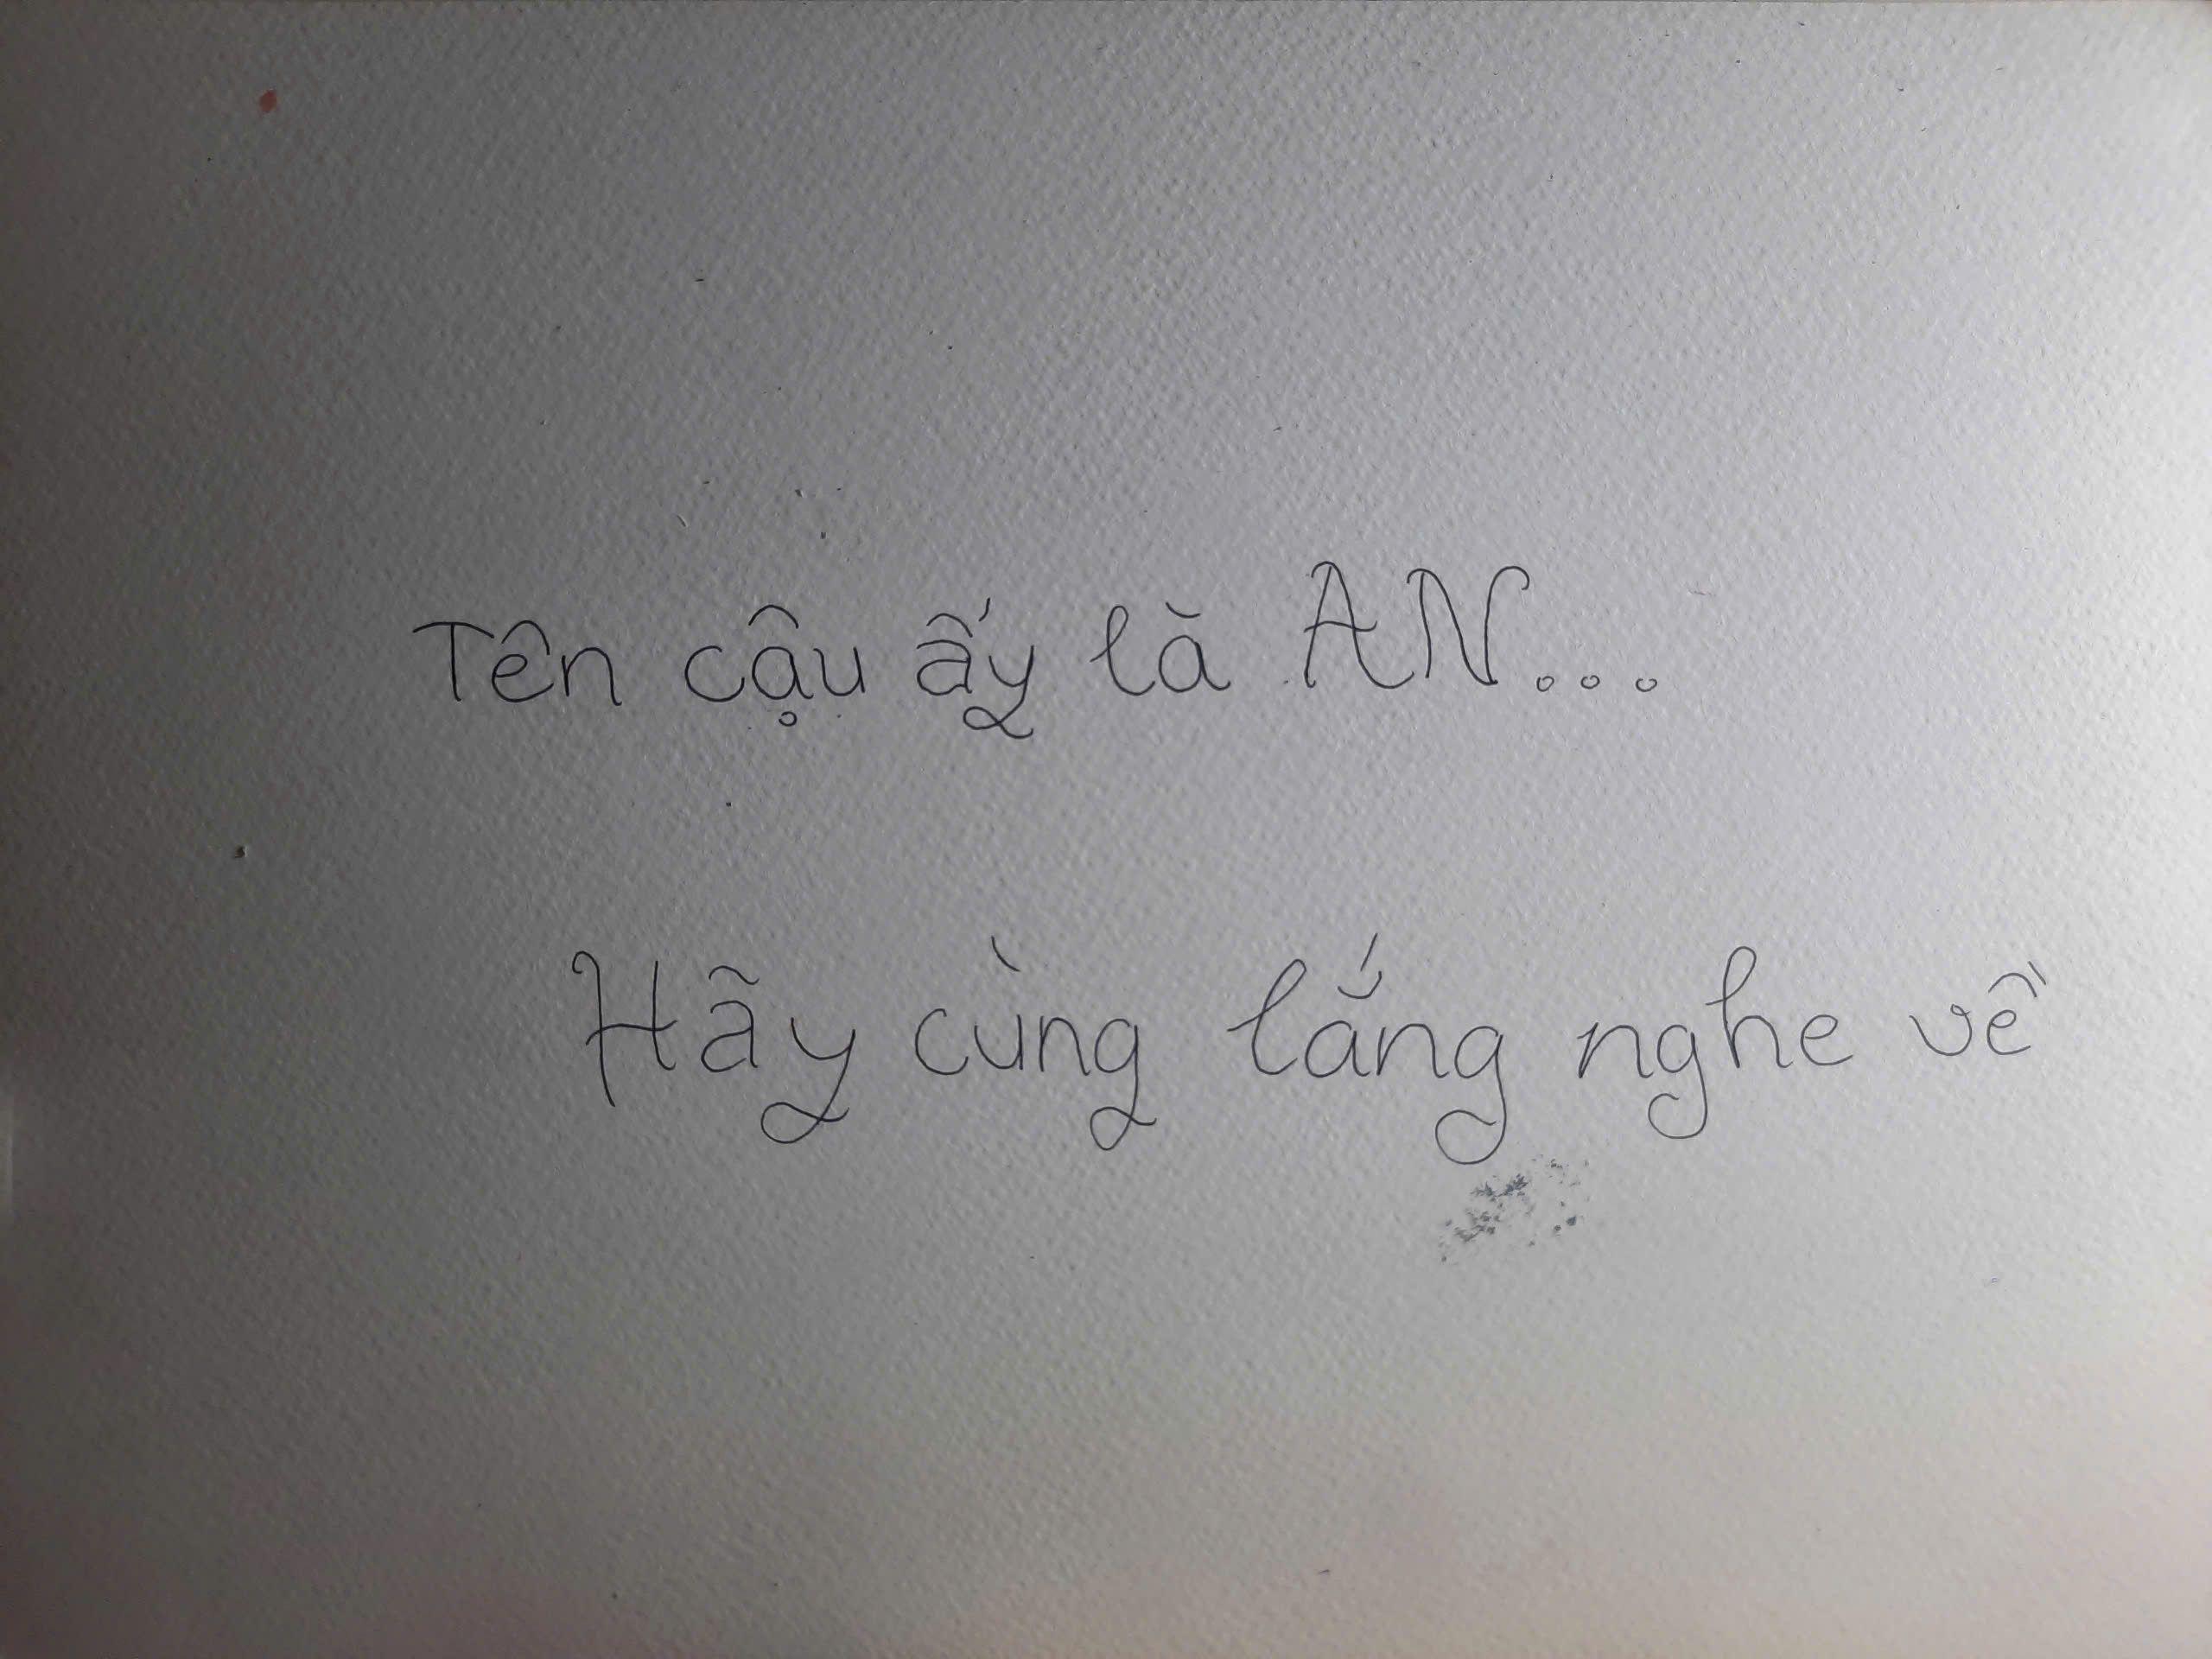 Tên cậu ấy là AN...
Hãy cùng lắng nghe về